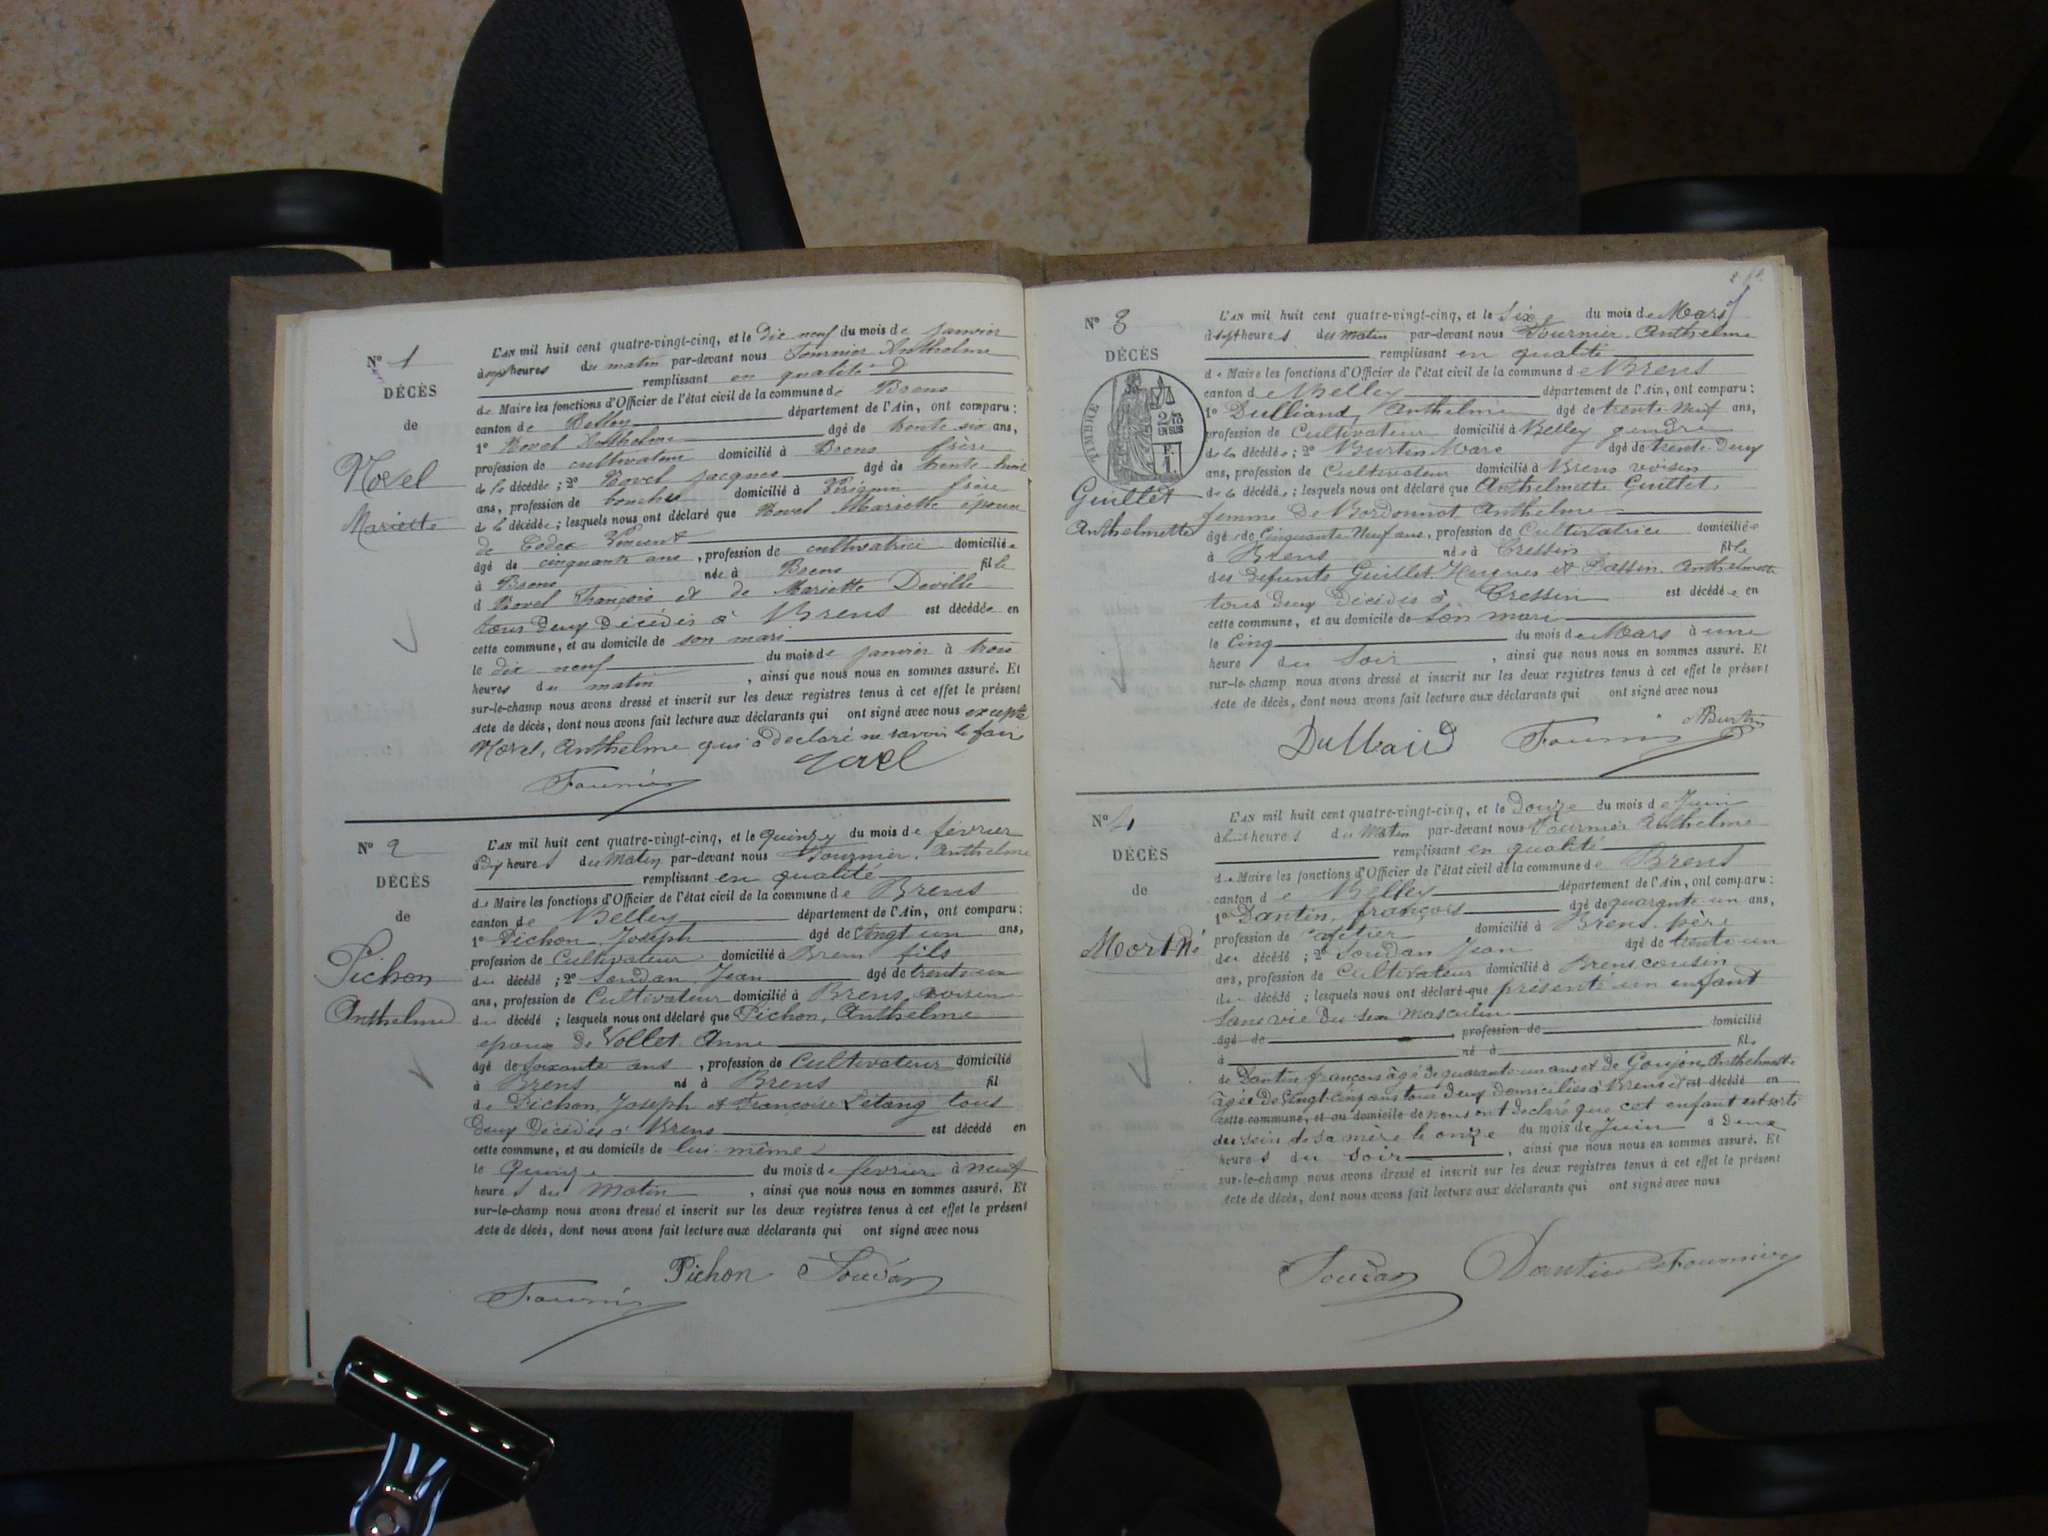 N° 1
DÉCÈS
de
Hovel
Mariette
L'AN mil huit cent quatre-vingt-cinq, et le Dix neuf du mois de Janvier
à sept heures du matin par-devant nous Fournier Anthelme
remplissant en qualité
de Maire les fonctions d'Officier de l'état civil de la commune de Brens
canton de Belley département de l'Ain, ont comparu :
1° Hovel Anthelme âgé de trente six ans,
profession de cultivateur domicilié à Brens frère
de la décédée ; 2° Hovel Jacques âgé de trente huit
ans, profession de domicilié à frère
de la décédée ; lesquels nous ont déclaré que Hovel Mariette épouse
de Vincent
âgé de cinquante ans, profession de cultivatrice domiciliée
à Brens née à Brens fille
d Hovel François et de Mariette Deville
tous deux décédés à Brens est décédée en
cette commune, et au domicile de son mari
le dix neuf du mois de janvier à trois
heures du matin, ainsi que nous nous en sommes assuré. Et
sur-le-champ nous avons dressé et inscrit sur les deux registres tenus à cet effet le présent
Acte de décès, dont nous avons fait lecture aux déclarants qui ont signé avec nous excepté
Hovel, Anthelme qui a declaré ne savoir le faire
Fournier
N° 2
DÉCÈS
de
Pichon
Anthelme
L'AN mil huit cent quatre-vingt-cinq, et le quinze du mois de février
à dix heures du Matin par-devant nous Fournier, Anthelme
remplissant en qualité
de Maire les fonctions d'Officier de l'état civil de la commune de Brens
canton de Belley département de l'Ain, ont comparu :
1° Pichon Joseph âgé de vingt un ans,
profession de Cultivateur domicilié à Brens fils
du décédé ; 2° Soudan Jean âgé de trente un
ans, profession de Cultivateur domicilié à Brens, voisin
du décédé ; lesquels nous ont déclaré que Pichon, Anthelme
epoux de Vollet Anne
âgé de soixante ans, profession de Cultivateur domicilié
à Brens né à Brens fil
de Pichon, Joseph et Françoise Létang tous
deux décédés à Brens est décédé en
cette commune, et au domicile de lui-même
le quinze du mois de février à neuf
heures du Matin, ainsi que nous nous en sommes assuré. Et
sur-le-champ nous avons dressé et inscrit sur les deux registres tenus à cet effet le présent
Acte de décès, dont nous avons fait lecture aux déclarants qui ont signé avec nous
Pichon Soudan
Fournier
N° 3
DÉCÈS
TIMBRE
Guillet
Anthelmette
L'AN mil huit cent quatre-vingt-cinq, et le Six du mois de Mars
à sept heures du Matin par-devant nous Fournier Anthelme
remplissant en qualité
de Maire les fonctions d'Officier de l'état civil de la commune de Brens
canton de Belley département de l'Ain, ont comparu :
1° Dulliand, Anthelme âgé de trente neuf ans,
profession de Cultivateur domicilié à Belley gendre
de la décédée ; 2° Burtin Marc âgé de trente deux
ans, profession de Cultivateur domicilié à Brens voisin
de la décédée ; lesquels nous ont déclaré que Anthelmette Guillet,
femme De Bordonnot Anthelme
âgée de Cinquante Neuf ans, profession de Cultivatrice domiciliée
à Brens née à Cressin fille
des défunts Guillet Hugues et Bassin Anthelmette
tous deux décédés à Cressin est décédée en
cette commune, et au domicile de Son mari
le Cinq du mois de Mars à une
heure du Soir, ainsi que nous nous en sommes assuré. Et
sur-le-champ nous avons dressé et inscrit sur les deux registres tenus à cet effet le présent
Acte de décès, dont nous avons fait lecture aux déclarants qui ont signé avec nous
Dulliand Fournier Burtin
N° 4
DÉCÈS
de
Mort Né
L'AN mil huit cent quatre-vingt-cinq, et le Douze du mois de Juin
à huit heures du Matin par-devant nous Fournier Anthelme
remplissant en qualité
de Maire les fonctions d'Officier de l'état civil de la commune de Brens
canton de Belley département de l'Ain, ont comparu :
1° Dantin, françois âgé de quarante un ans,
profession de domicilié à Brens, père
du décédé ; 2° Soudan Jean âgé de trente un
ans, profession de Cultivateur domicilié à Brens cousin
du décédé ; lesquels nous ont déclaré que présenté un enfant
sans vie du sexe masculin
âgé de profession de domicilié
à né à fil
de Dantin françois âgé de quarante un ans et de Goujon, Anthelmette
âgée de vingt cinq ans tous deux domiciliés à Brens et est décédé en
cette commune, et au domicile de nous ont declaré que cet enfant est sorti
du sein de sa mère le onze du mois de Juin à deux
heures du soir, ainsi que nous nous en sommes assuré. Et
sur-le-champ nous avons dressé et inscrit sur les deux registres tenus à cet effet le présent
Acte de décès, dont nous avons fait lecture aux déclarants qui ont signé avec nous
Soudan Dantin Fournier